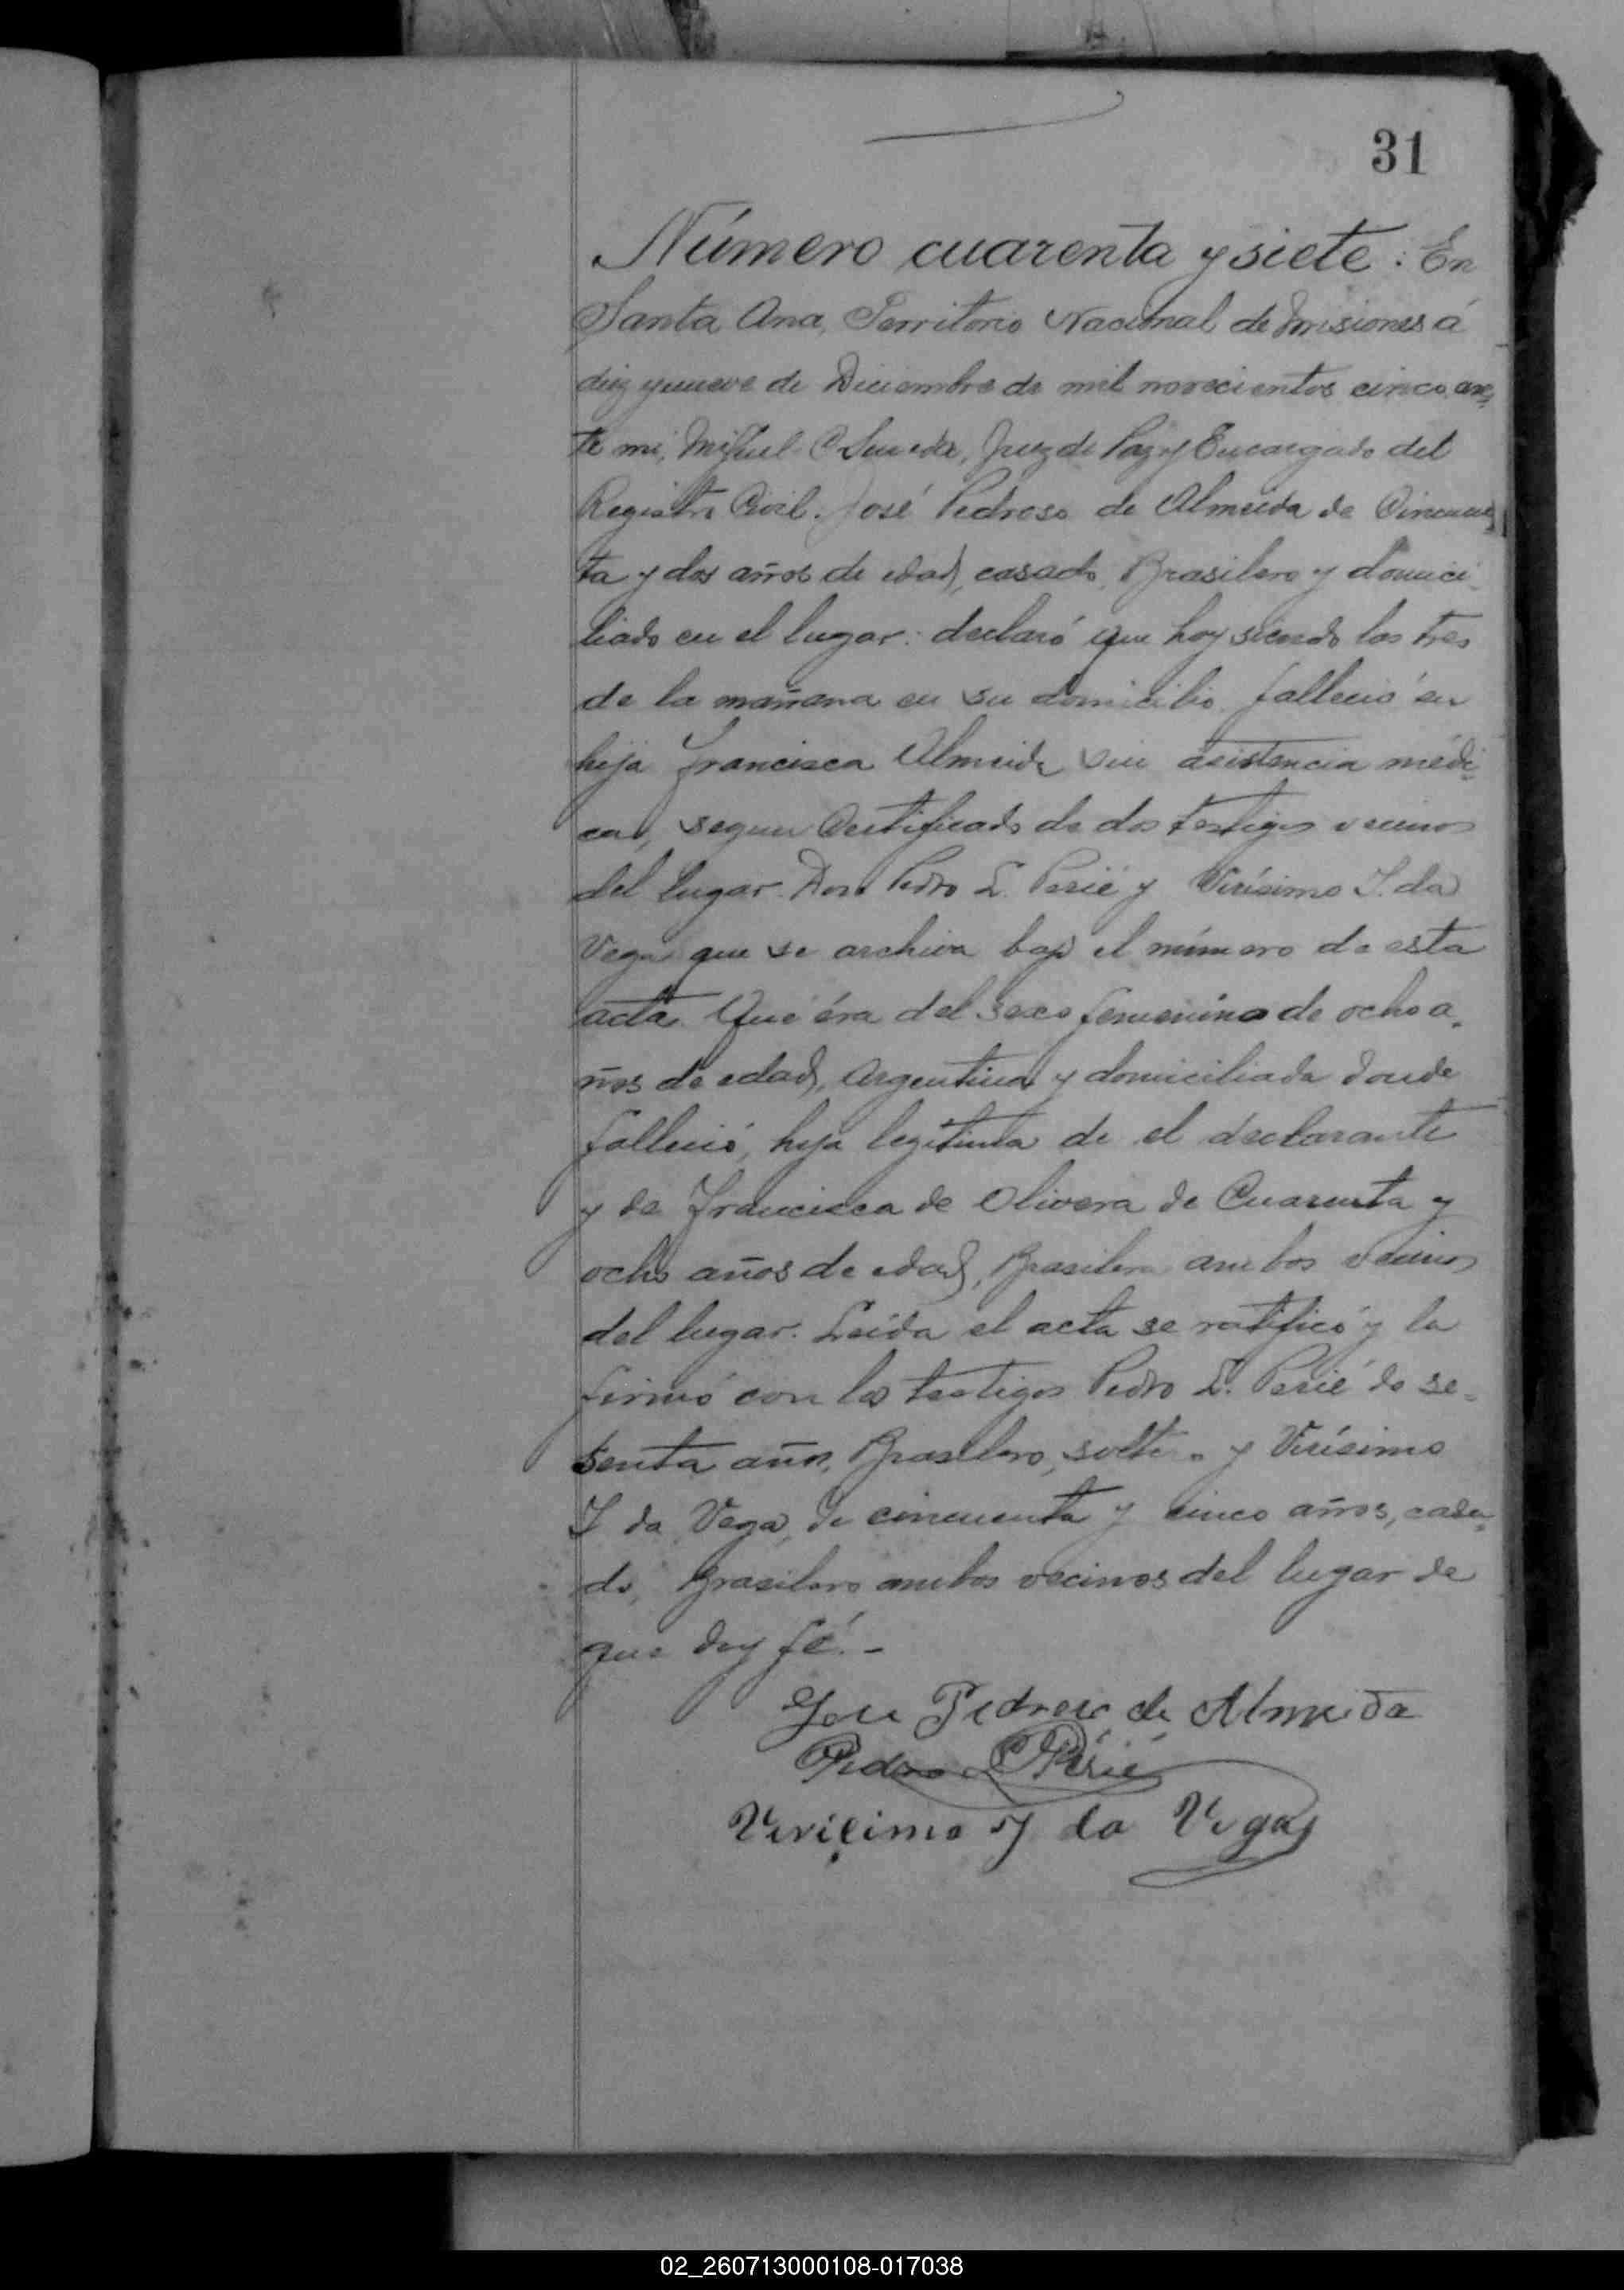 31
Número cuarenta y siete: En
Santa Ana, Territorio Nacional de Misiones á
diez y nueve de Diciembre de mil novecientos cinco, an-
te mi, Miguel Juez de Paz y Encargado del
Registro Civil. José Pedroso de Almeida de Cincuen-
ta y dos años de edad, casado, Brasilero y domici-
liado en el lugar: declaró que hoy siendo las tres
de la mañana en su domicilio falleció su
hija Francisca Almeida sin asistencia médi-
ca, segun Certificado de dos testigos vecinos
del lugar. Don Pedro L. Perié y Verísimo I. da
Vega que se archiva bajo el número de esta
acta. Que éra del sexo femenino de ocho a-
ños de edad, Argentina y domiciliada donde
falleció, hija legítima de el declarante
y de Francisca de Olivera de Cuarenta y
ocho años de edad, Brasilera ambos vecinos
del lugar. Leída el acta se ratificó y la
firmó con los testigos Pedro L. Perié de se-
senta años, Brasilero, soltero y Verísimo
I da Vega, de cincuenta y cinco años, casa-
do, Brasilero ambos vecinos del lugar de
que doy fé.-
Jose Pedroso de Almeida
Pedro L Périé
Veriçimo I da Vega
02_260713000108-017038